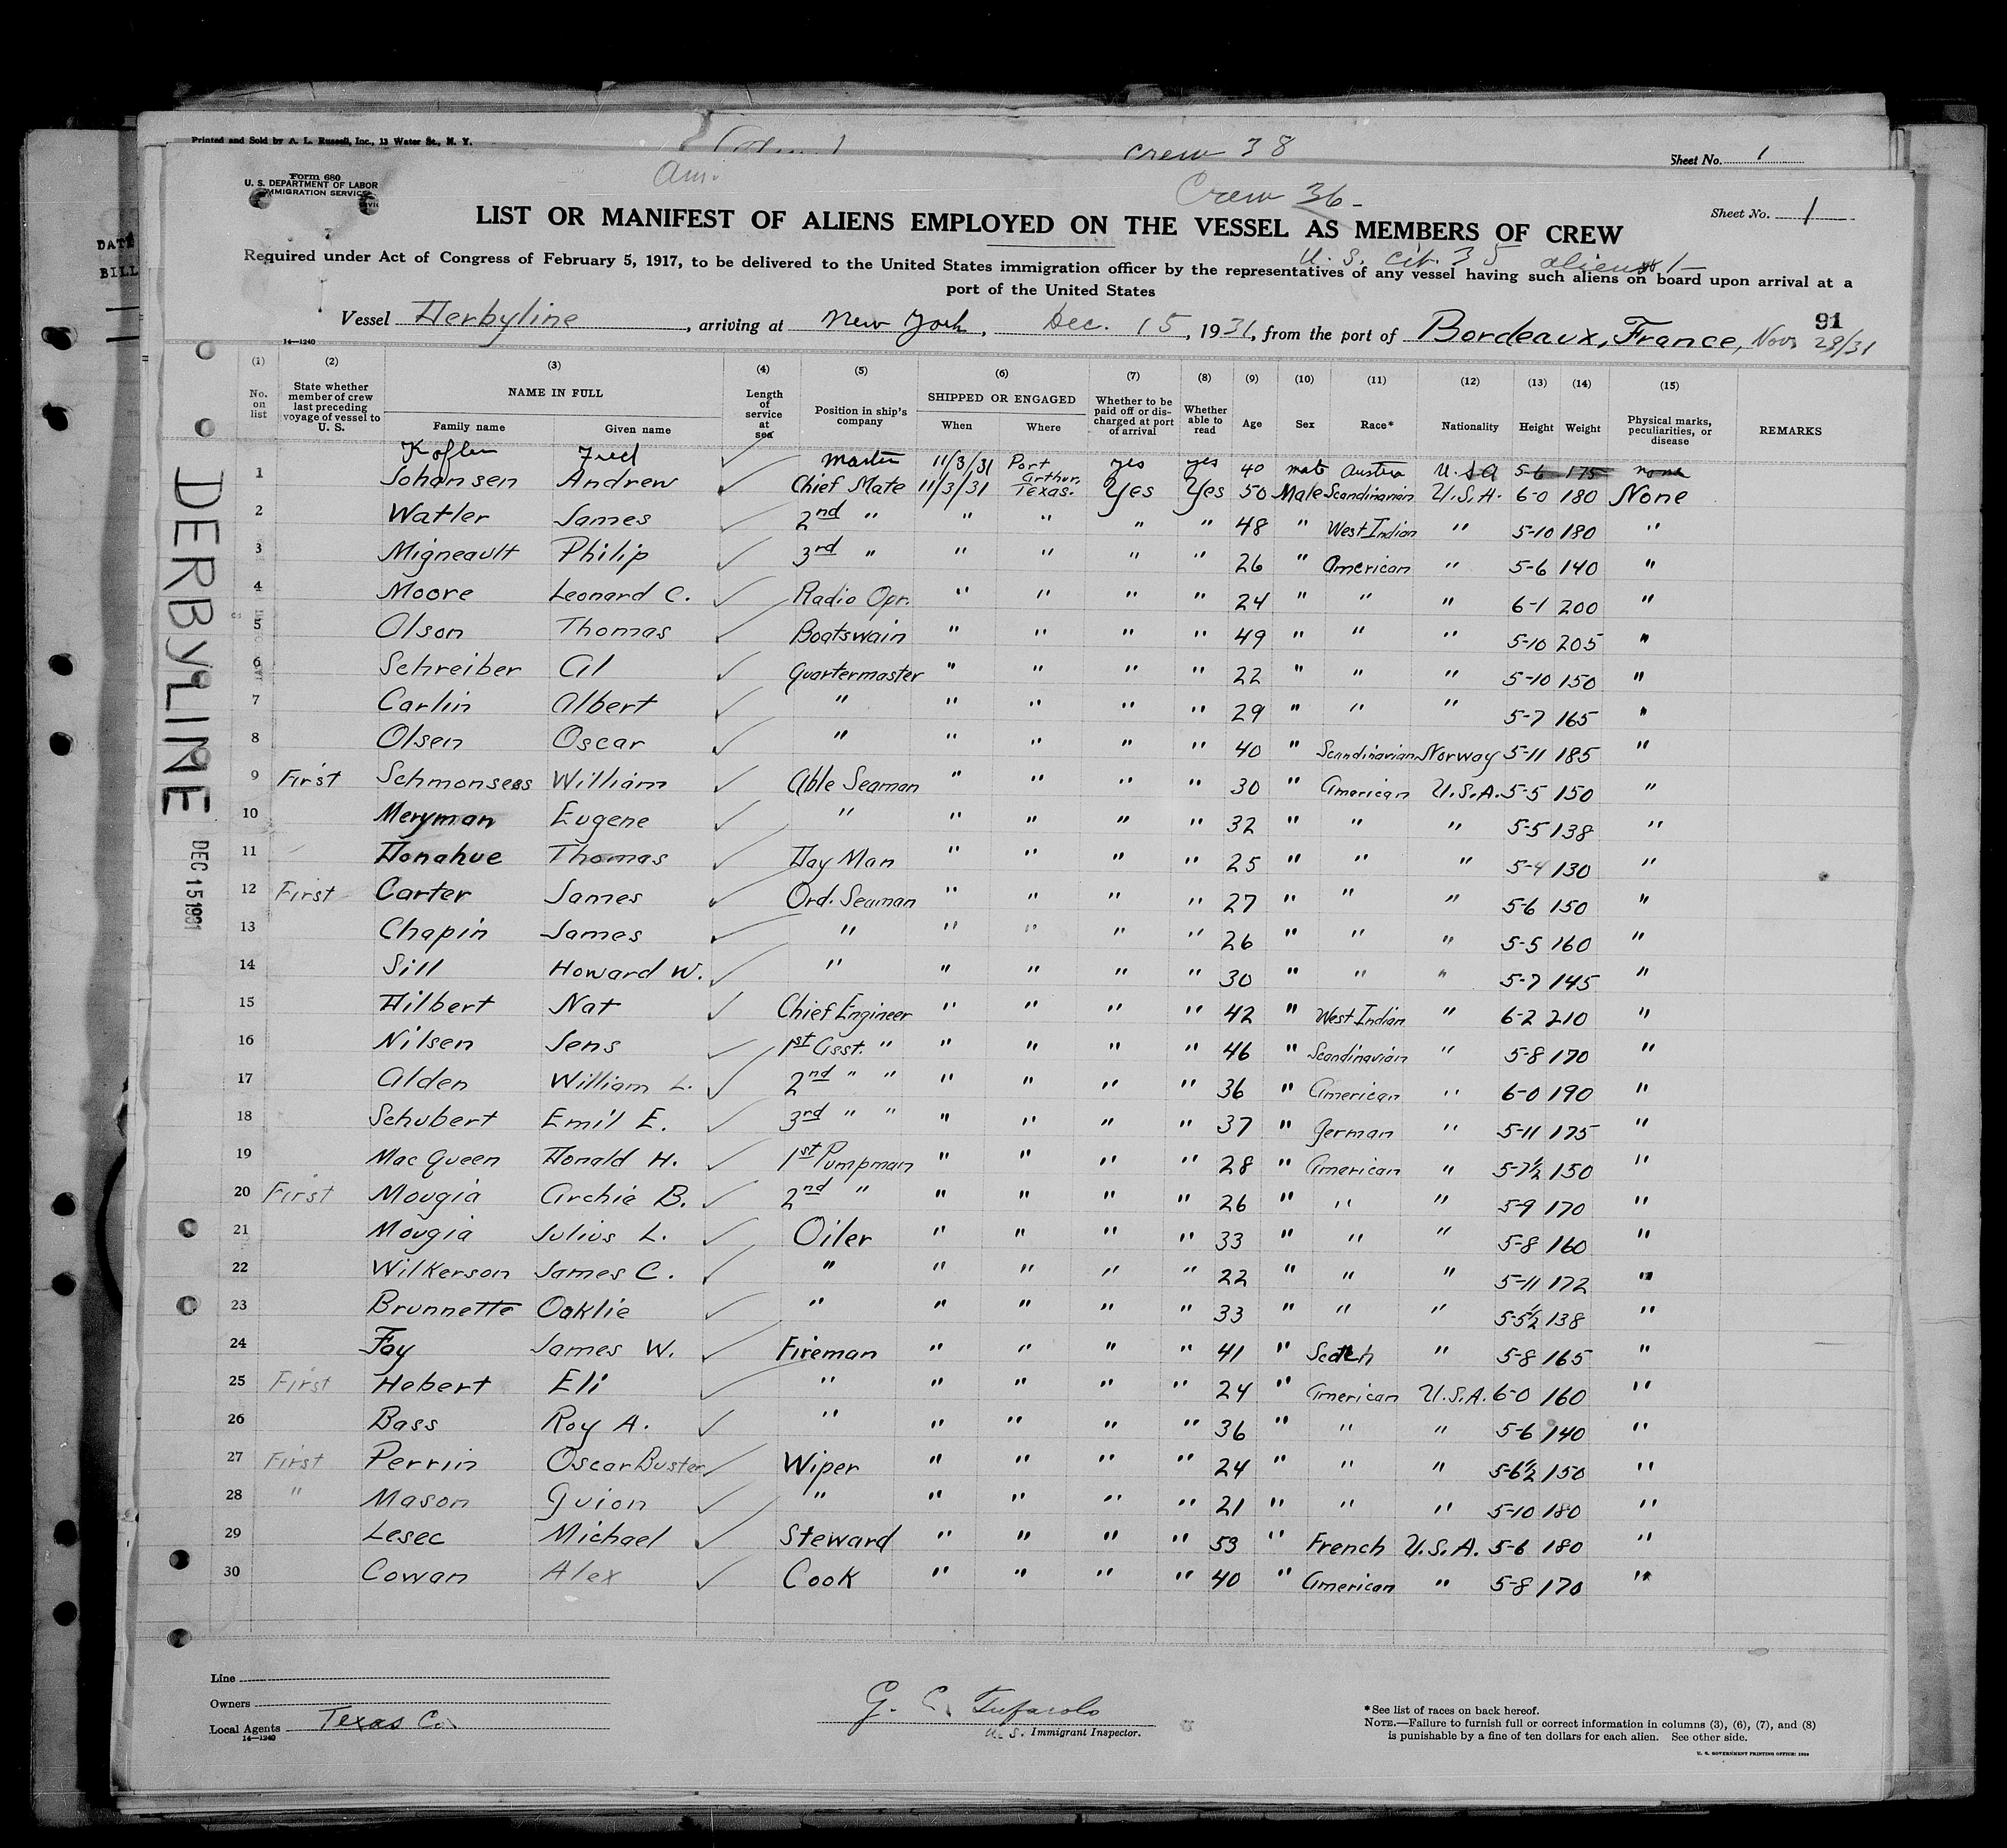 Printed and Sold by A. L. Russell, Inc., 13 Water St., N. Y.
crew 38
Sheet No. 1
Am.
Form 680
U. S. DEPARTMENT OF LABOR
IMMIGRATION SERVICE
Crew 36-
Sheet No. 1
LIST OR MANIFEST OF ALIENS EMPLOYED ON THE VESSEL AS MEMBERS OF CREW
U. S. cit. 35 aliens 1-
Required under Act of Congress of February 5, 1917, to be delivered to the United States immigration officer by the representatives of any vessel having such aliens on board upon arrival at a
port of the United States
Vessel Derbyline, arriving at New York, Dec. 15, 1931, from the port of Bordeaux, France, Nov. 28/31
91
14—1240
DATE
BILL
(1) (2) (3) (4) (5) (6) (7) (8) (9) (10) (11) (12) (13) (14) (15)
No. on list
State whether member of crew last preceding voyage of vessel to U. S.
NAME IN FULL
Family name Given name
Length of service at sea
Position in ship's company
SHIPPED OR ENGAGED
When Where
Whether to be paid off or discharged at port of arrival
Whether able to read
Age Sex Race* Nationality Height Weight
Physical marks, peculiarities, or disease
REMARKS
Koflen Fred Master 11/3/31 Port yes yes 40 male Austria U.S.A 5-6 175 none
1 Johansen Andrew Chief Mate 11/3/31 Arthur, Texas. Yes Yes 50 Male Scandinavian U.S.A. 6-0 180 None
2 Watler James 2nd " " " " " 48 " West Indian " 5-10 180 "
3 Migneault Philip 3rd " " " " " 26 " American " 5-6 140 "
4 Moore Leonard C. Radio Opr. " " " " 24 " " " 6-1 200 "
5 Olson Thomas Boatswain " " " " 49 " " " 5-10 205 "
6 Schreiber Al Quartermaster " " " " 22 " " " 5-10 150 "
7 Carlin Albert " " " " " 29 " " " 5-7 165 "
8 Olsen Oscar " " " " " 40 " Scandinavian Norway 5-11 185 "
9 First Schmonsees William Able Seaman " " " " 30 " American U.S.A. 5-5 150 "
10 Meryman Eugene " " " " " 32 " " " 5-5 138 "
11 Donahue Thomas Day Man " " " " 25 " " " 5-4 130 "
12 First Carter James Ord. Seaman " " " " 27 " " " 5-6 150 "
13 Chapin James " " " " " 26 " " " 5-5 160 "
14 Sill Howard W. " " " " " 30 " " " 5-7 145 "
15 Dilbert Nat Chief Engineer " " " " 42 " West Indian " 6-2 210 "
16 Nilsen Jens 1st Asst. " " " " " 46 " Scandinavian " 5-8 170 "
17 Alden William L. 2nd " " " " " " 36 " American " 6-0 190 "
18 Schubert Emil E. 3rd " " " " " " 37 " German " 5-11 175 "
19 Mac Queen Donald H. 1st Pumpman " " " " 28 " American " 5-7½ 150 "
20 First Mougia Archie B. 2nd " " " " " 26 " " " 5-9 170 "
21 Mougia Julius L. Oiler " " " " 33 " " " 5-8 160 "
22 Wilkerson James C. " " " " " 22 " " " 5-11 172 "
23 Brunnette Oaklie " " " " " 33 " " " 5-5½ 138 "
24 Fay James W. Fireman " " " " 41 " Scotch " 5-8 165 "
25 First Hebert Eli " " " " " 24 " American U.S.A. 6-0 160 "
26 Bass Roy A. " " " " " 36 " " " 5-6 140 "
27 First Perrin Oscar Buster Wiper " " " " 24 " " " 5-6½ 150 "
28 " Mason Guion " " " " " 21 " " " 5-10 180 "
29 Lesec Michael Steward " " " " 53 " French U.S.A. 5-6 180 "
30 Cowan Alex Cook " " " " 40 " American " 5-8 170 "
DERBYLINE
DEC 15 1931
Line
Owners
Local Agents Texas Co.
14—1240
G. C. Tufarolo
U. S. Immigrant Inspector.
*See list of races on back hereof.
NOTE.—Failure to furnish full or correct information in columns (3), (6), (7), and (8)
is punishable by a fine of ten dollars for each alien. See other side.
U. S. GOVERNMENT PRINTING OFFICE: 1929